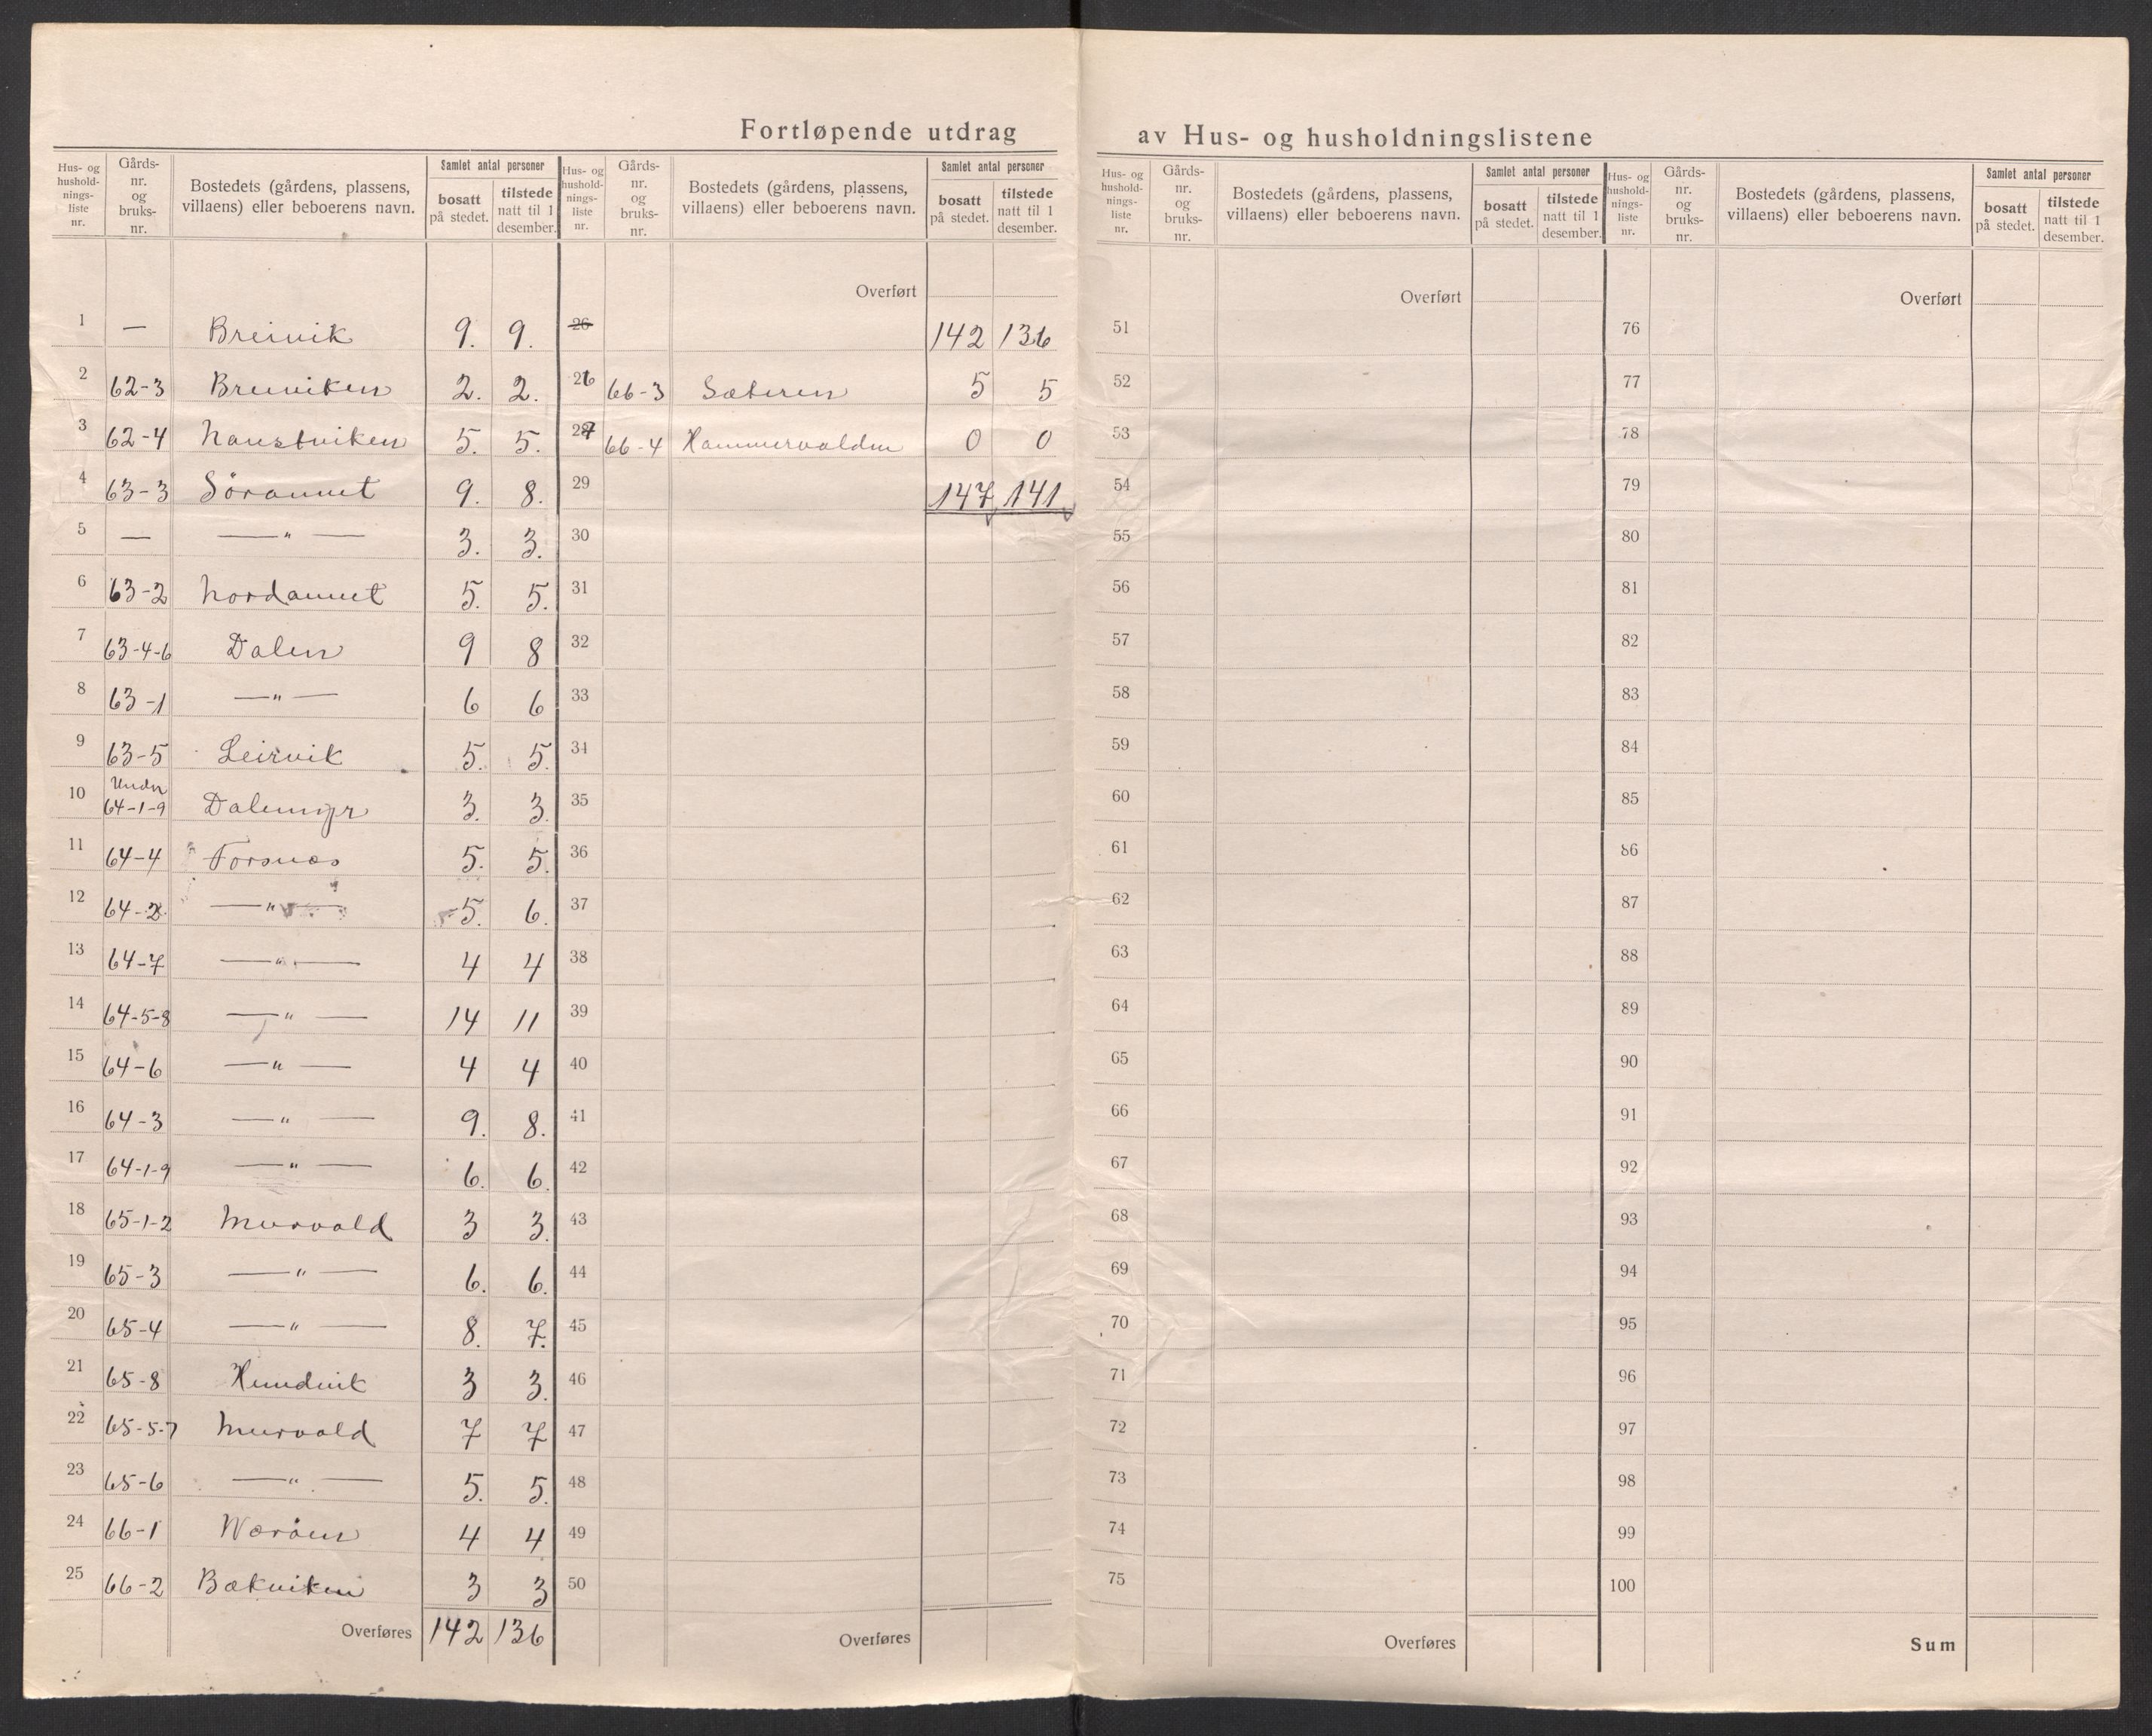 Fortløpende utdrag av Hus- og husholdningslistene
Hus- og husholdnings-liste nr. | Gårds-nr. og bruks-nr. | Bostedets (gårdens, plassens, villaens) eller beboerens navn. | Samlet antal personer | bosatt på stedet. | tilstede natt til 1 desember.
1 — Breivik 9. 9.
2 62-3 Breiviken 2. 2.
3 62-4 Naustviken 5. 5.
4 63-3 Söraunet 9. 8.
5 — —"— 3. 3.
6 63-2 Nordaunet 5. 5.
7 63-4-6 Dalen 9 8
8 63-1 —"— 6 6
9 63-5 Leirvik 5. 5.
10 Under 64-1-9 Dalemyr 3. 3.
11 64-4 Forsnes 5. 5.
12 64-2 —"— 5. 6.
13 64-7 —"— 4 4
14 64-5-8 —"— 14 11
15 64-6 —"— 4 4
16 64-3 —"— 9. 8.
17 64-1-9 —"— 6. 6.
18 65-1-2 Murvold 3 3.
19 65-3 —"— 6. 6.
20 65-4 —"— 8. 7.
21 65-8 Hundvik 3 3.
22 65-5-7 Murvold 7 7
23 65-6 —"— 5. 5.
24 66-1 Værøen 4 4
25 66-2 Bækviken 3 3
Overføres 142 136
Hus- og husholdnings-liste nr. | Gårds-nr. og bruks-nr. | Bostedets (gårdens, plassens, villaens) eller beboerens navn. | Samlet antal personer | bosatt på stedet. | tilstede natt til 1 desember.
Overført
26 142 136
26 66-3 Sæteren 5 5
27 66-4 Hammervolden 0 0
29 147 141
30
31
32
33
34
35
36
37
38
39
40
41
42
43
44
45
46
47
48
49
50
Overføres
Hus- og husholdnings-liste nr. | Gårds-nr. og bruks-nr. | Bostedets (gårdens, plassens, villaens) eller beboerens navn. | Samlet antal personer | bosatt på stedet. | tilstede natt til 1 desember.
Overført
51
52
53
54
55
56
57
58
59
60
61
62
63
64
65
66
67
68
69
70
71
72
73
74
75
Overføres
Hus- og husholdnings-liste nr. | Gårds-nr. og bruks-nr. | Bostedets (gårdens, plassens, villaens) eller beboerens navn. | Samlet antal personer | bosatt på stedet. | tilstede natt til 1 desember.
Overført
76
77
78
79
80
81
82
83
84
85
86
87
88
89
90
91
92
93
94
95
96
97
98
99
100
Sum